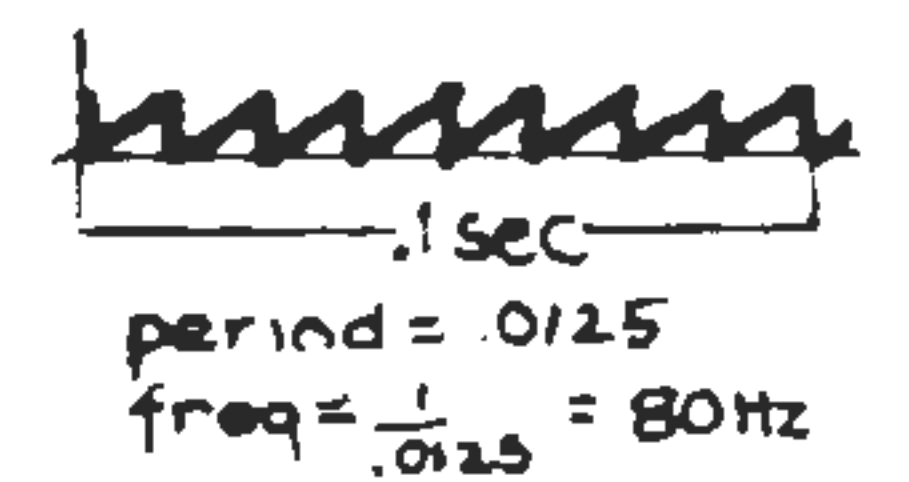 .1 sec
period = .0125
freq = 1/.0125 = 80 Hz